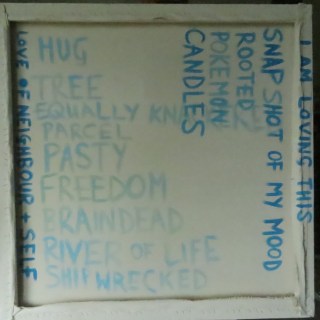 HUG
TREE
EQUALLY
PARCEL
PASTY
FREEDOM
BRAINDEAD
RIVER OF LIFE
SHIPWRECKED
CANDLES
POKEMON
ROOTED
SNAP SHOT OF MY MOOD
I AM LOVING THIS
LOVE OF NEIGHBOUR + SELF